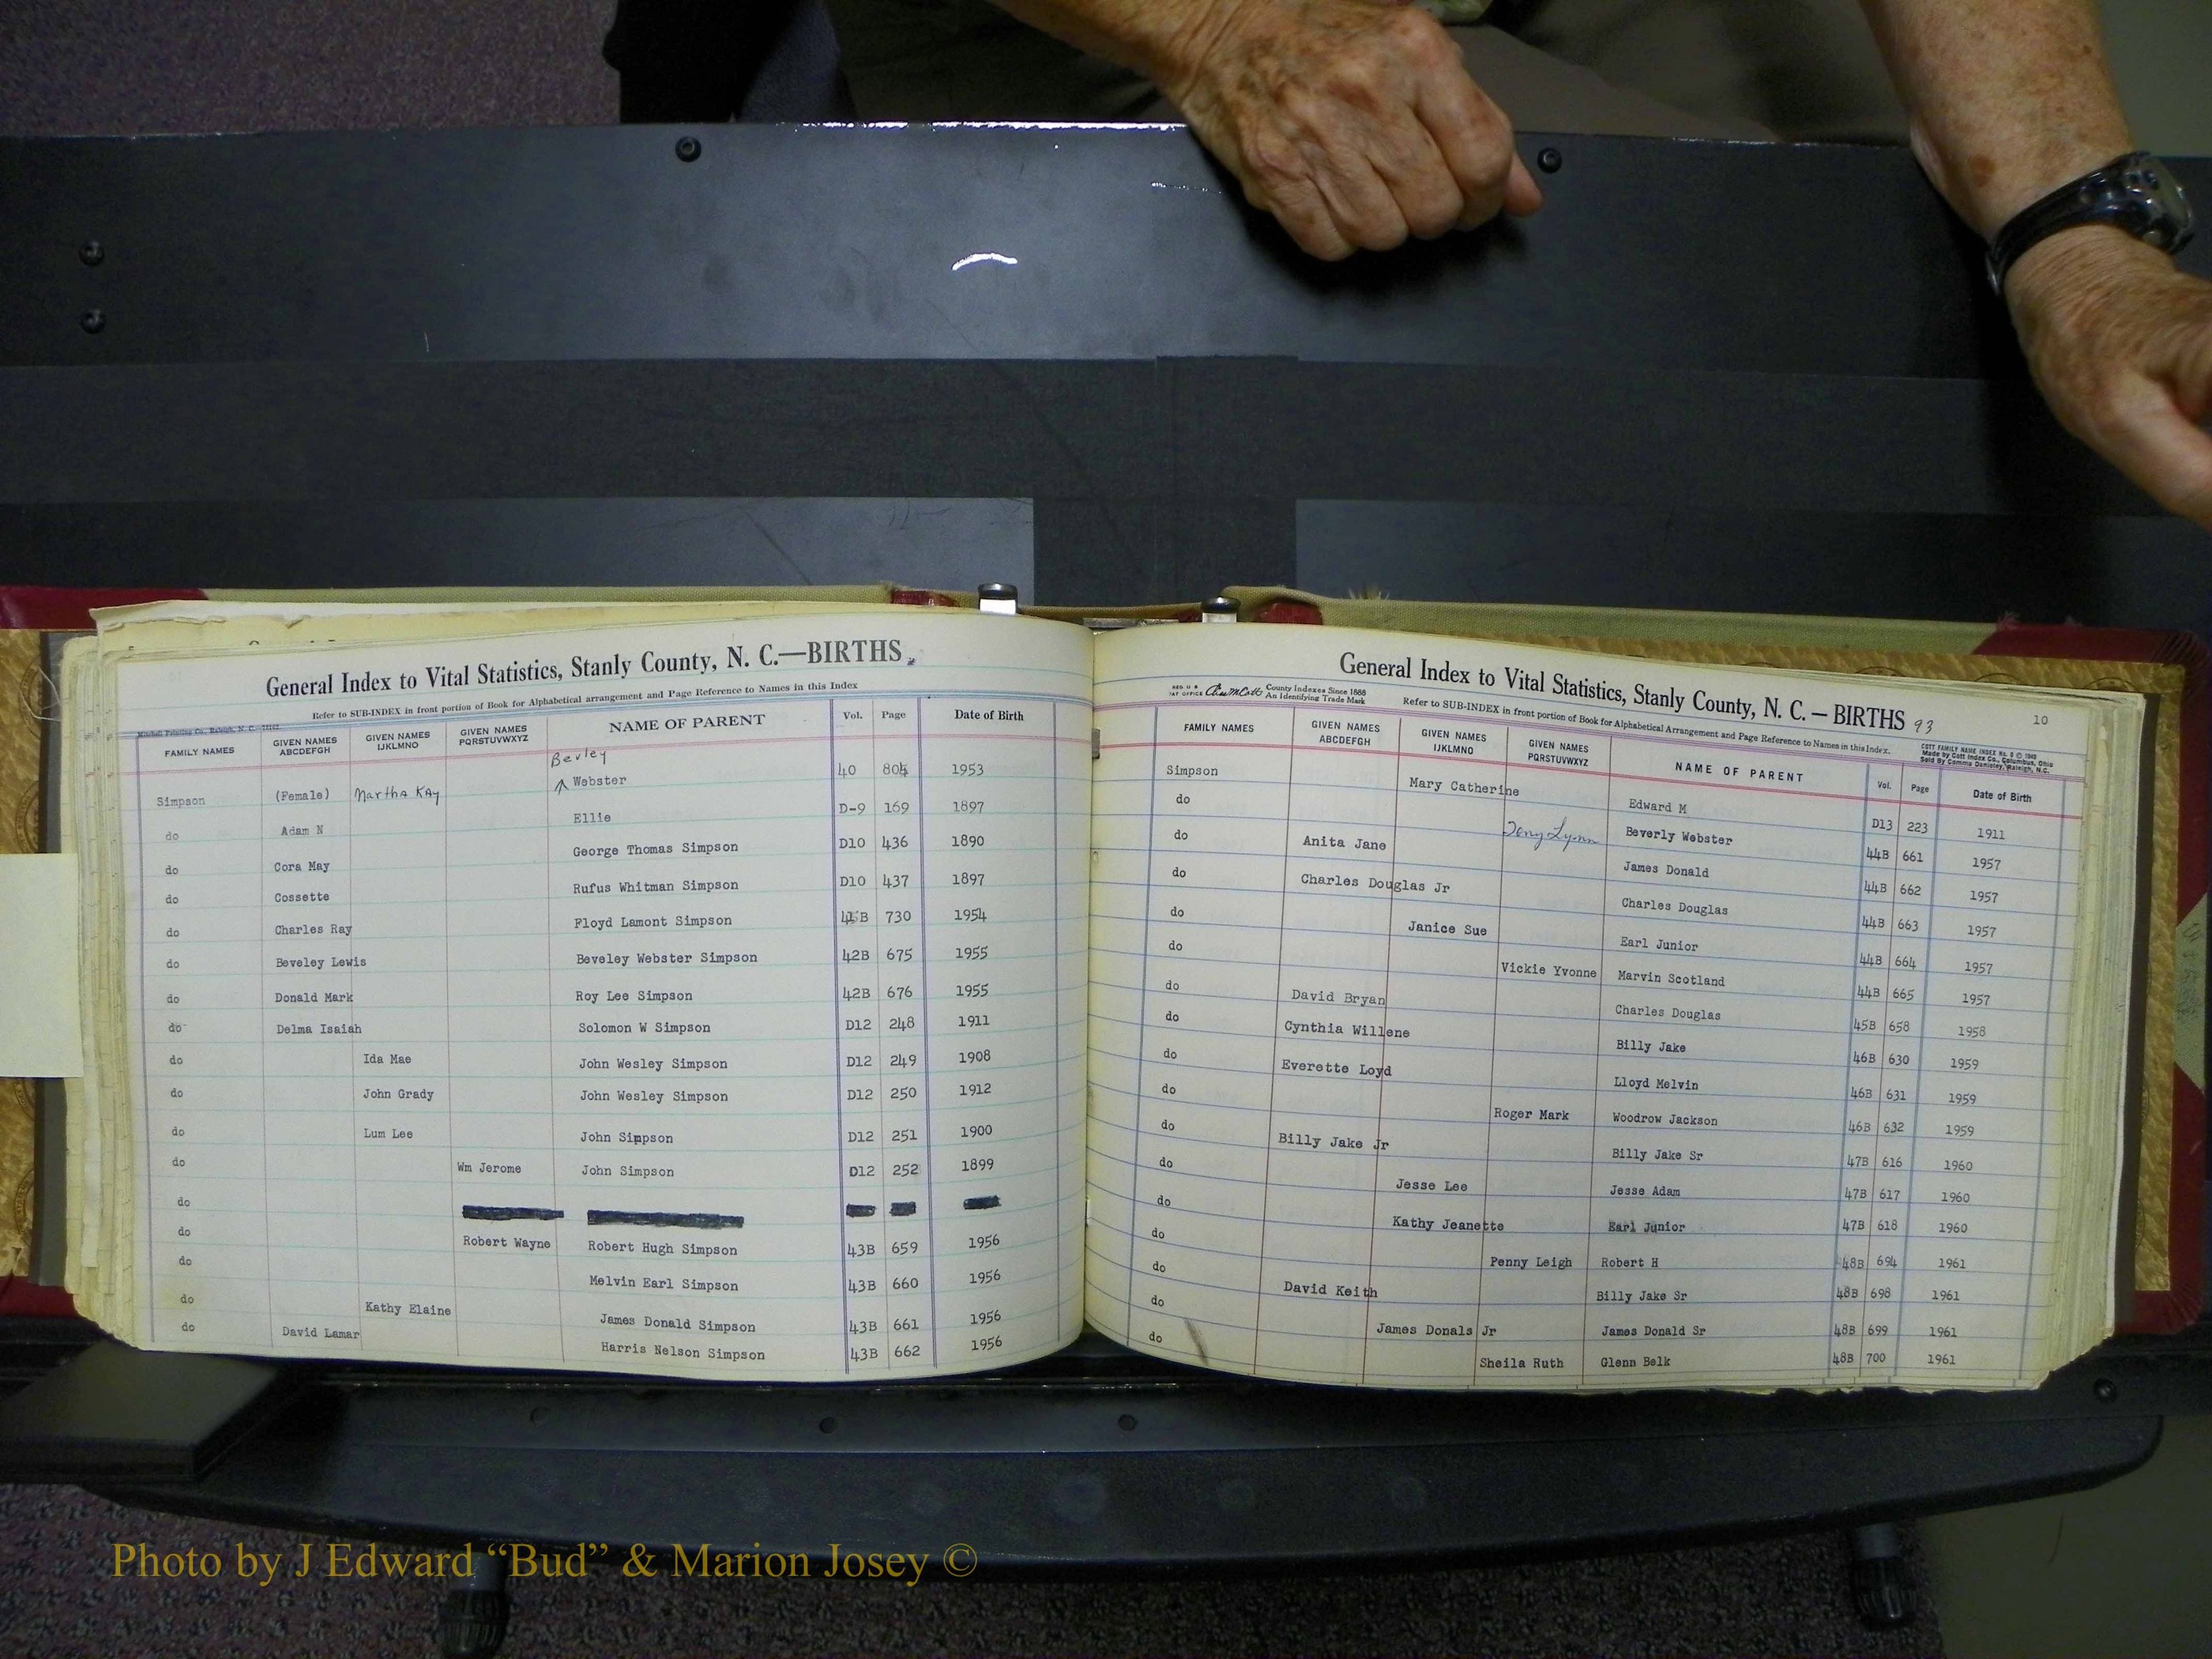 General Index to Vital Statistics, Stanly County, N. C.—BIRTHS
Refer to SUB-INDEX in front portion of Book for Alphabetical arrangement and Page Reference to Names in this Index
FAMILY NAMES GIVEN NAMES ABCDEFGH GIVEN NAMES IJKLMNO GIVEN NAMES PQRSTUVWXYZ NAME OF PARENT Vol. Page Date of Birth
Bevley
Simpson (Female) Martha Kay Webster 40 804 1953
do Adam N Ellie D-9 169 1897
do Cora May George Thomas Simpson D10 436 1890
do Cossette Rufus Whitman Simpson D10 437 1897
do Charles Ray Floyd Lamont Simpson 730 1954
do Beveley Lewis Beveley Webster Simpson 42B 675 1955
do Donald Mark Roy Lee Simpson 42B 676 1955
do Delma Isaiah Solomon W Simpson D12 248 1911
do Ida Mae John Wesley Simpson D12 249 1908
do John Grady John Wesley Simpson D12 250 1912
do Lum Lee John Simpson D12 251 1900
do Wm Jerome John Simpson D12 252 1899
do
do Robert Wayne Robert Hugh Simpson 43B 659 1956
do Melvin Earl Simpson 43B 660 1956
do Kathy Elaine James Donald Simpson 43B 661 1956
do David Lamar Harris Nelson Simpson 43B 662 1956
General Index to Vital Statistics, Stanly County, N. C. — BIRTHS 93
10
County Indexes Since 1888
An Identifying Trade Mark
Refer to SUB-INDEX in front portion of Book for Alphabetical Arrangement and Page Reference to Names in this Index.
COTT FAMILY NAME INDEX
Made by Cott Index Co., Columbus, Ohio
FAMILY NAMES GIVEN NAMES ABCDEFGH GIVEN NAMES IJKLMNO GIVEN NAMES PQRSTUVWXYZ NAME OF PARENT Vol. Page Date of Birth
Simpson Mary Catherine Edward M D13 223 1911
do Tony Lynn Beverly Webster 44B 661 1957
do Anita Jane James Donald 44B 662 1957
do Charles Douglas Jr Charles Douglas 44B 663 1957
do Janice Sue Earl Junior 44B 664 1957
do Vickie Yvonne Marvin Scotland 44B 665 1957
do David Bryan Charles Douglas 45B 658 1958
do Cynthia Willene Billy Jake 46B 630 1959
do Everette Loyd Lloyd Melvin 46B 631 1959
do Roger Mark Woodrow Jackson 46B 632 1959
do Billy Jake Jr Billy Jake Sr 47B 616 1960
do Jesse Lee Jesse Adam 47B 617 1960
do Kathy Jeanette Earl Junior 47B 618 1960
do Penny Leigh Robert H 48B 694 1961
do David Keith Billy Jake Sr 48B 698 1961
do James Donals Jr James Donald Sr 48B 699 1961
do Sheila Ruth Glenn Belk 48B 700 1961
Photo by J Edward “Bud” & Marion Josey ©